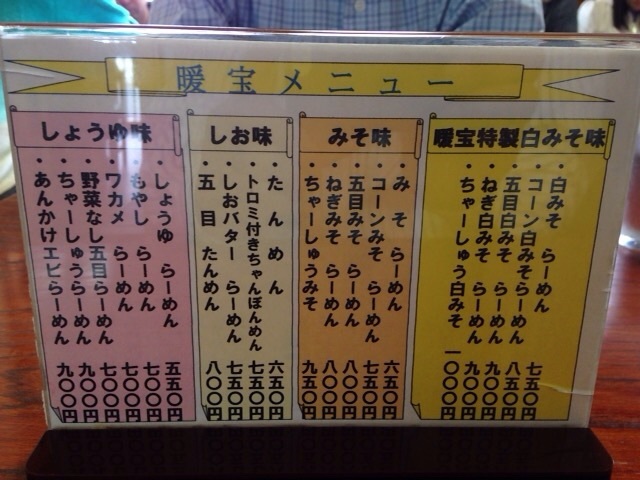 暖宝メニュー
暖宝特製白みそ味
・白みそ らーめん 七五〇円
・コーン白みそらーめん 八五〇円
・五目白みそ らーめん 九〇〇円
・ねぎ白みそ らーめん 九〇〇円
・ちゃーしゅう白みそ 一〇〇〇円
みそ味
・みそ らーめん 六五〇円
・コーンみそ らーめん 七五〇円
・五目みそ らーめん 八〇〇円
・ねぎみそ らーめん 八〇〇円
・ちゃーしゅうみそ 九五〇円
しお味
・たんめん 六五〇円
・トロミ付きちゃんぽんめん 七五〇円
・しおバター らーめん 七五〇円
・五目 たんめん 八〇〇円
しょうゆ味
・しょうゆ らーめん 五五〇円
・もやし らーめん 七〇〇円
・ワカメ らーめん 七〇〇円
・野菜なし五目らーめん 七〇〇円
・ちゃーしゅうらーめん 九〇〇円
・あんかけエビらーめん 九〇〇円